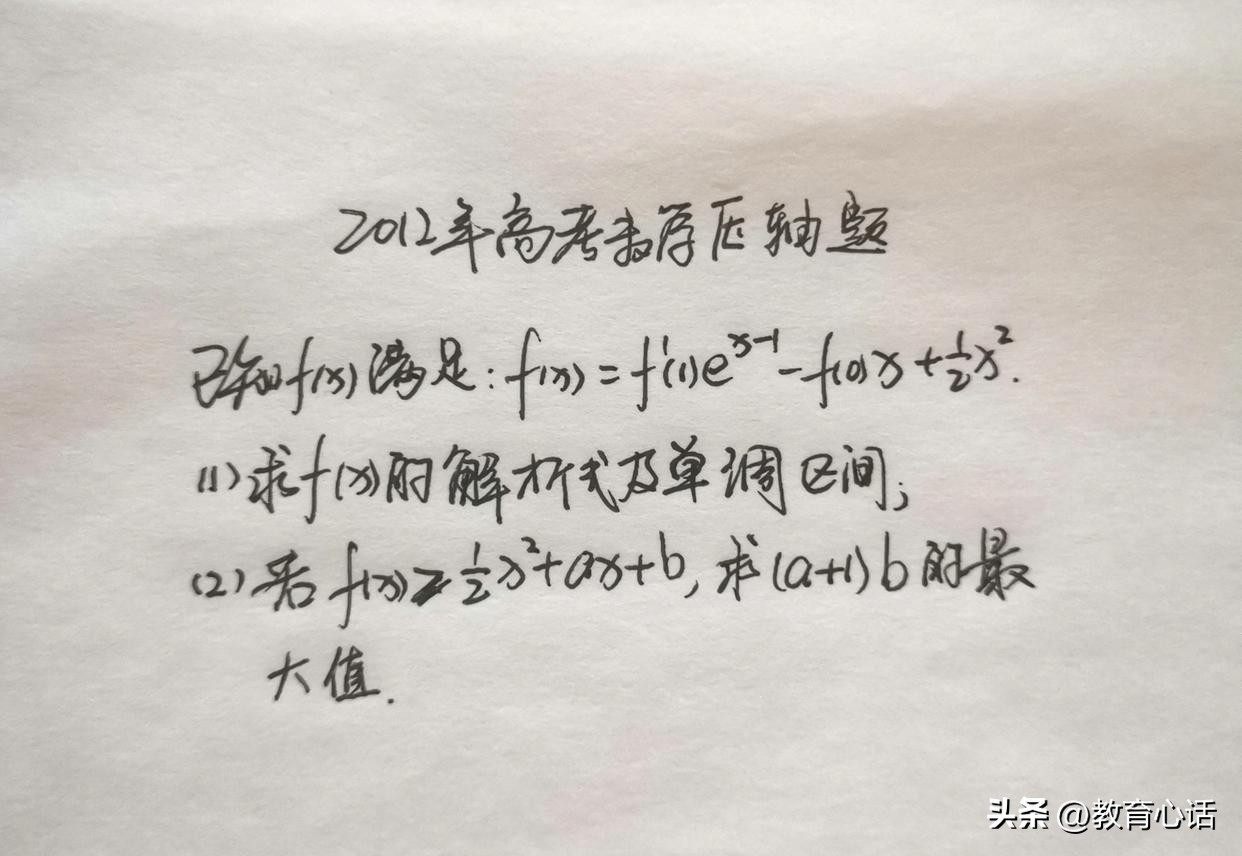 2012年高考数学压轴题
已知f(x)满足:f(x)=f'(1)e^{x-1}-f(0)x+\frac{1}{2}x².
(1)求f(x)的解析式及单调区间;
(2)若f(x)≥\frac{1}{2}x²+ax+b,求(a+1)b的最
大值.
头条 @教育心话